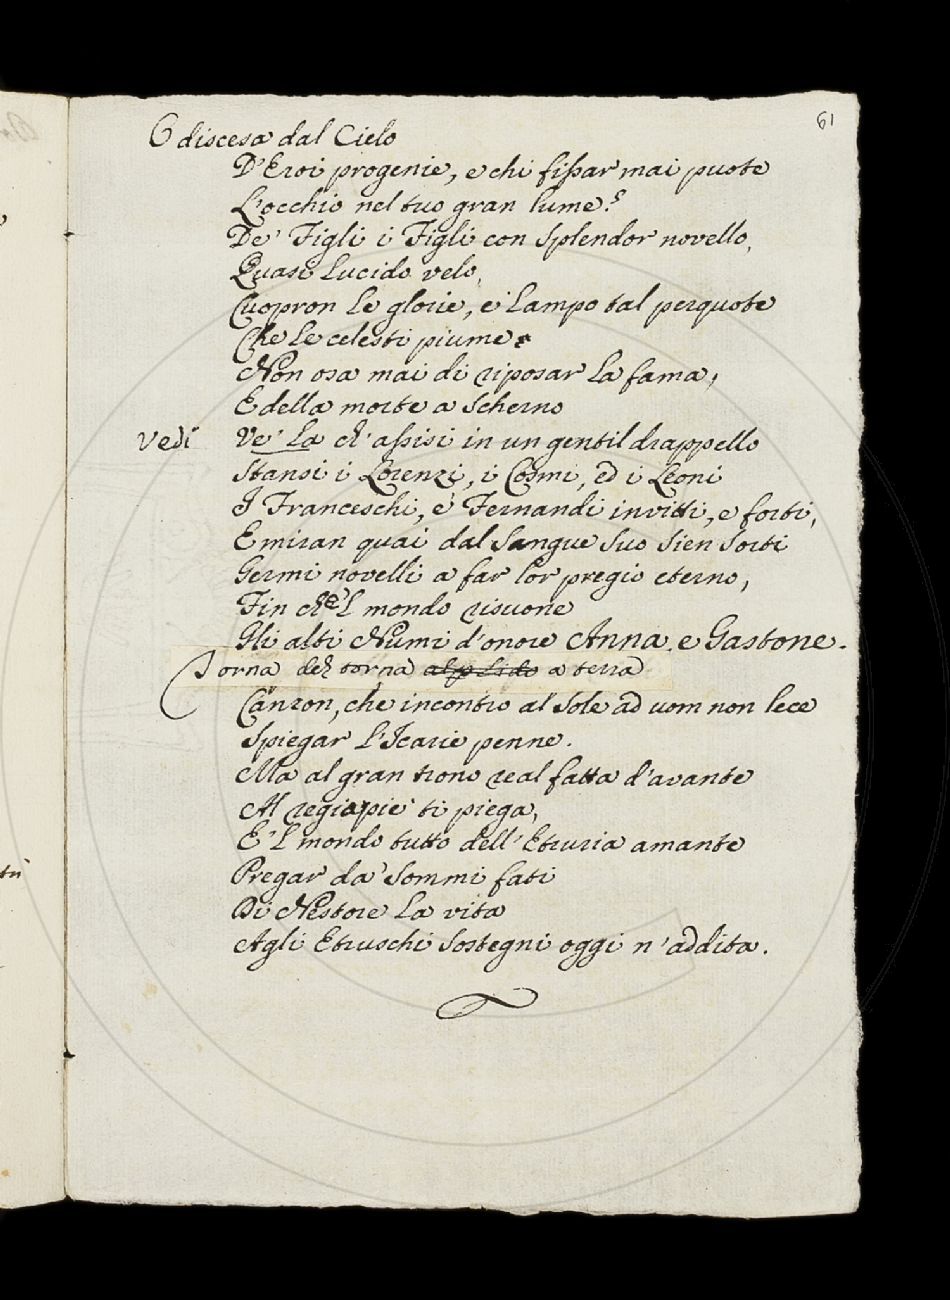 61
O discesa dal Cielo
D'Eroi progenie, e chi fissar mai puote
L'occhio nel tuo gran lume?
De' Figli i Figli con splendor novello,
Quasi lucido velo,
Cuopron le glorie, e lampo tal perquote
Che le celesti piume
Non osa mai di riposar la fama,
E della morte a scherno
Vedi Ve' là ch'assisi in un gentil drappello
Stansi i Lorenzi, i Cosmi, ed i Leoni
I Franceschi, e Fernandi invitti, e forti,
E miran quai dal sangue suo sien sorti
Germi novelli a far lor pregio eterno,
Fin che'l mondo risuone
Gli alti Numi d'onore Anna, e Gastone.
Torna deh torna a terra
Canzon, che incontro al sole ad uom non lece
Spiegar l'Icarie penne.
Ma al gran trono real fatta d'avante
Al regio piè ti piega,
E'l mondo tutto dell'Etruria amante
Pregar da' sommi fati
Di Nestore la vita
Agli Etruschi sostegni oggi n'addita.
tù